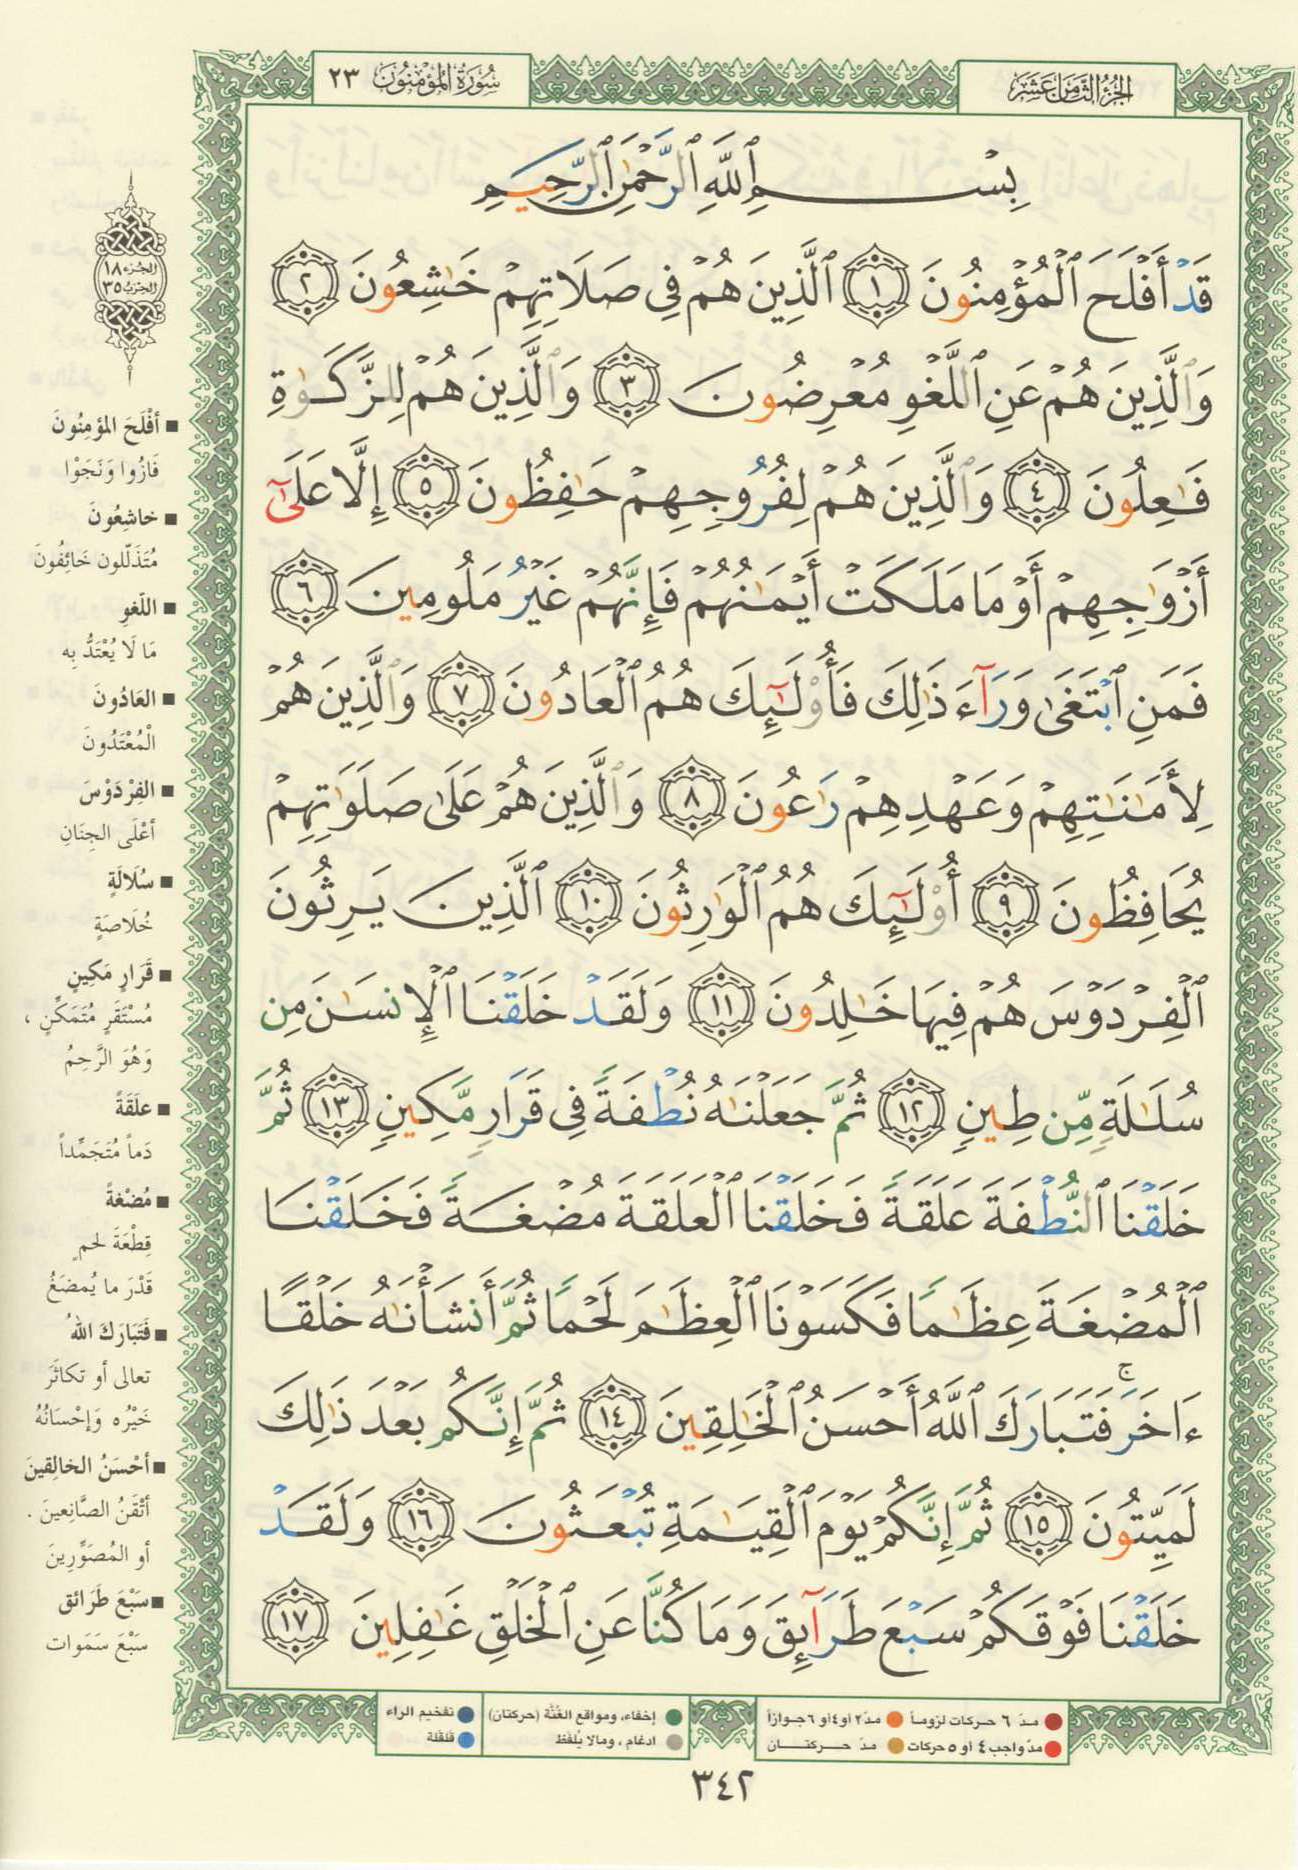 سُورَةُ المُؤْمِنُونَ ٢٣
الجُزْءُ الثَّامِنَ عَشَر
بِسْمِ ٱللَّهِ ٱلرَّحْمَٰنِ ٱلرَّحِيمِ
قَدْ أَفْلَحَ ٱلْمُؤْمِنُونَ ١ ٱلَّذِينَ هُمْ فِى صَلَاتِهِمْ خَٰشِعُونَ ٢
وَٱلَّذِينَ هُمْ عَنِ ٱللَّغْوِ مُعْرِضُونَ ٣ وَٱلَّذِينَ هُمْ لِلزَّكَوٰةِ
فَٰعِلُونَ ٤ وَٱلَّذِينَ هُمْ لِفُرُوجِهِمْ حَٰفِظُونَ ٥ إِلَّا عَلَىٰٓ
أَزْوَٰجِهِمْ أَوْ مَا مَلَكَتْ أَيْمَٰنُهُمْ فَإِنَّهُمْ غَيْرُ مَلُومِينَ ٦
فَمَنِ ٱبْتَغَىٰ وَرَآءَ ذَٰلِكَ فَأُو۟لَٰٓئِكَ هُمُ ٱلْعَادُونَ ٧ وَٱلَّذِينَ هُمْ
لِأَمَٰنَٰتِهِمْ وَعَهْدِهِمْ رَٰعُونَ ٨ وَٱلَّذِينَ هُمْ عَلَىٰ صَلَوَٰتِهِمْ
يُحَافِظُونَ ٩ أُو۟لَٰٓئِكَ هُمُ ٱلْوَٰرِثُونَ ١٠ ٱلَّذِينَ يَرِثُونَ
ٱلْفِرْدَوْسَ هُمْ فِيهَا خَٰلِدُونَ ١١ وَلَقَدْ خَلَقْنَا ٱلْإِنسَٰنَ مِن
سُلَٰلَةٍ مِّن طِينٍ ١٢ ثُمَّ جَعَلْنَٰهُ نُطْفَةً فِى قَرَارٍ مَّكِينٍ ١٣ ثُمَّ
خَلَقْنَا ٱلنُّطْفَةَ عَلَقَةً فَخَلَقْنَا ٱلْعَلَقَةَ مُضْغَةً فَخَلَقْنَا
ٱلْمُضْغَةَ عِظَٰمًا فَكَسَوْنَا ٱلْعِظَٰمَ لَحْمًا ثُمَّ أَنشَأْنَٰهُ خَلْقًا
ءَاخَرَ ۚ فَتَبَارَكَ ٱللَّهُ أَحْسَنُ ٱلْخَٰلِقِينَ ١٤ ثُمَّ إِنَّكُم بَعْدَ ذَٰلِكَ
لَمَيِّتُونَ ١٥ ثُمَّ إِنَّكُمْ يَوْمَ ٱلْقِيَٰمَةِ تُبْعَثُونَ ١٦ وَلَقَدْ
خَلَقْنَا فَوْقَكُمْ سَبْعَ طَرَآئِقَ وَمَا كُنَّا عَنِ ٱلْخَلْقِ غَٰفِلِينَ ١٧
الجزء ١٨
الحزب ٣٥
■ أفْلَحَ المؤمِنُونَ
فَازُوا وَنَجَوْا
■ خاشِعُونَ
مُتَذَلّلون خَائِفُونَ
■ اللّغوِ
مَا لَا يُعْتَدُّ بِه
■ العَادُونَ
الْمُعْتَدُونَ
■ الفِرْدَوْسَ
أعْلَى الجِنَانِ
■ سُلَالَةٍ
خُلَاصَةٍ
■ قَرَارٍ مَكِينٍ
مُسْتَقَرٍ مُتَمَكِّنٍ ،
وَهُوَ الرَّحِمُ
■ علَقَةً
دَماً مُتَجَمِّداً
■ مُضْغةً
قِطْعَةَ لحمٍ
قَدْرَ ما يُمضَغُ
■ فَتَبَارَكَ اللهُ
تعالى أو تكاثَرَ
خَيْرُه وَإحْسَانُهُ
■ أحْسَنُ الخالِقينَ
أتْقَنُ الصَّانِعينَ .
أو المُصَوِّرِينَ
■ سَبْعَ طَرَائق
سَبْعَ سَمَوات
مدّ ٦ حركات لزوماً
مدّ ٢ أو ٤ أو ٦ جوازاً
مدّ واجب ٤ او ٥ حركات
مدّ حركتان
إخفاء، ومواقع الغُنَّة (حركتان)
ادغام ، ومالا يُلفَظ
تفخيم الراء
قلقلة
٣٤٢